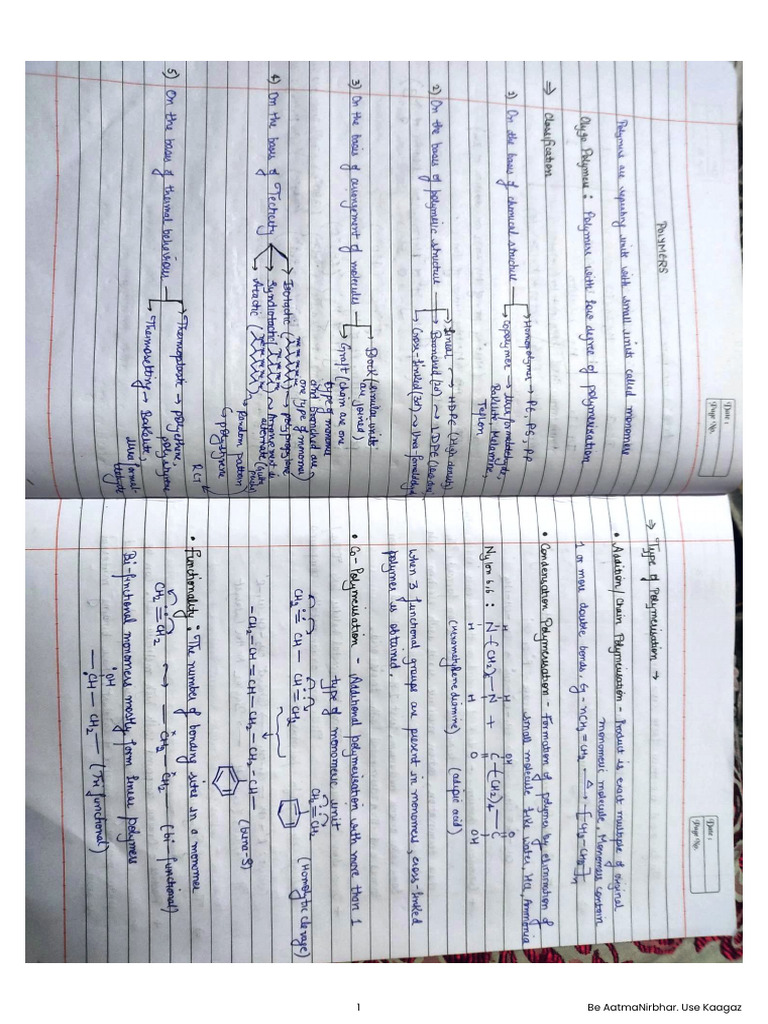 Date :
Page No.
POLYMERS
Polymers are repeating units with small units called monomers
Olygo Polymers : Polymers with low degree of polymerisation
⇒ Classification
1) On the basis of chemical structure
→ Homopolymer → PE, PS, PP
→ Copolymer → Urea formaldehyde,
Bakelite, Melamine,
Teflon
2) On the basis of polymeric structure
→ Linear → HDPE (High density)
→ Branched (2D) → LDPE
→ Cross-linked (3D) →
3) On the basis of arrangement of molecules
→ Block (similar units
are joined)
→ Graft (chain are one
type of monomer
and branched are
one type of monomer)
4) On the basis of Tecticity
→ Isotactic → polypropylene
→ Syndiotactic → Arrangement is
alternate
→ Atactic → Random pattern
→ polythene
5) On the basis of thermal behaviour
→ Thermoplastic → polythene,
polystyrene
→ Thermosetting → Bakelite,
Urea formal-
dehyde
Date :
Page No.
⇒ Type of Polymerisation →
• Addition/Chain Polymerisation - Product is exact multiple of original
monomeric molecule, Monomers contain
1 or more double bonds, Eg - nCH2=CH2 △→ -[CH2-CH2]n
• Condensation Polymerisation - Formation of polymer by elimination of
small molecule like water, HCl, Ammonia
H H O OH O
Nylon 6,6 : N-(CH2)-N + C-(CH2)4-C
H H OH
(Hexamethylene diamine) (adipic acid)
When 3 functional groups are present in monomers, cross-linked
polymer is obtained.
• Co-Polymerisation - Additional polymerisation with more than 1
type of monomeric unit
CH2=CH-CH=CH2 CH2=CH2 (Homolytic cleavage)
-CH2-CH=CH-CH2-CH2-CH- (buna-S)
• Functionality : The number of bonding sites in a monomer
CH2=CH2 → -CH2-CH2- (bi-functional)
Bi-functional monomers mostly form linear polymers
OH
-CH-CH2- (Tri functional)
1
Be AatmaNirbhar. Use Kaagaz